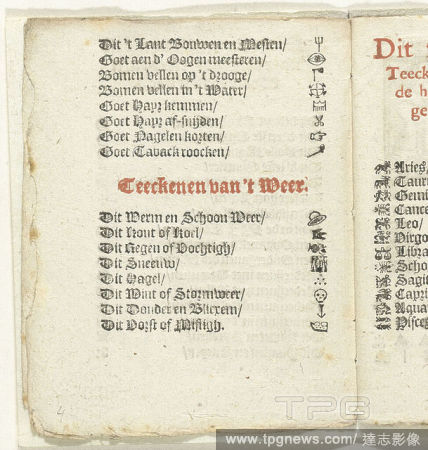 Dit 't Lant Bouwen en Mesten/
Goet aen d' Oogen meesteren/
Bomen vellen op 't drooge/
Bomen vellen in 't Water/
Goet Hayr kemmen/
Goet Hayr af-snijden/
Goet Nagelen korten/
Goet Taback roocken/
Teeckenen van 't Weer.
Dit Werm en Schoon Weer/
Dit Kout of Koel/
Dit Regen of Vochtigh/
Dit Sneeuw/
Dit Hagel/
Dit Wint of Stormweer/
Dit Donder en Blixem/
Dit Vorst of Mistigh.
4
Dit
Teeck
de h
ge
Aries/
Tauru
Gemi
Cance
Leo/
Virgo
Libra
Scho
Sagit
Capri
Aqua
Pisce
TPG
www.tpgnews.com/ 達志影像